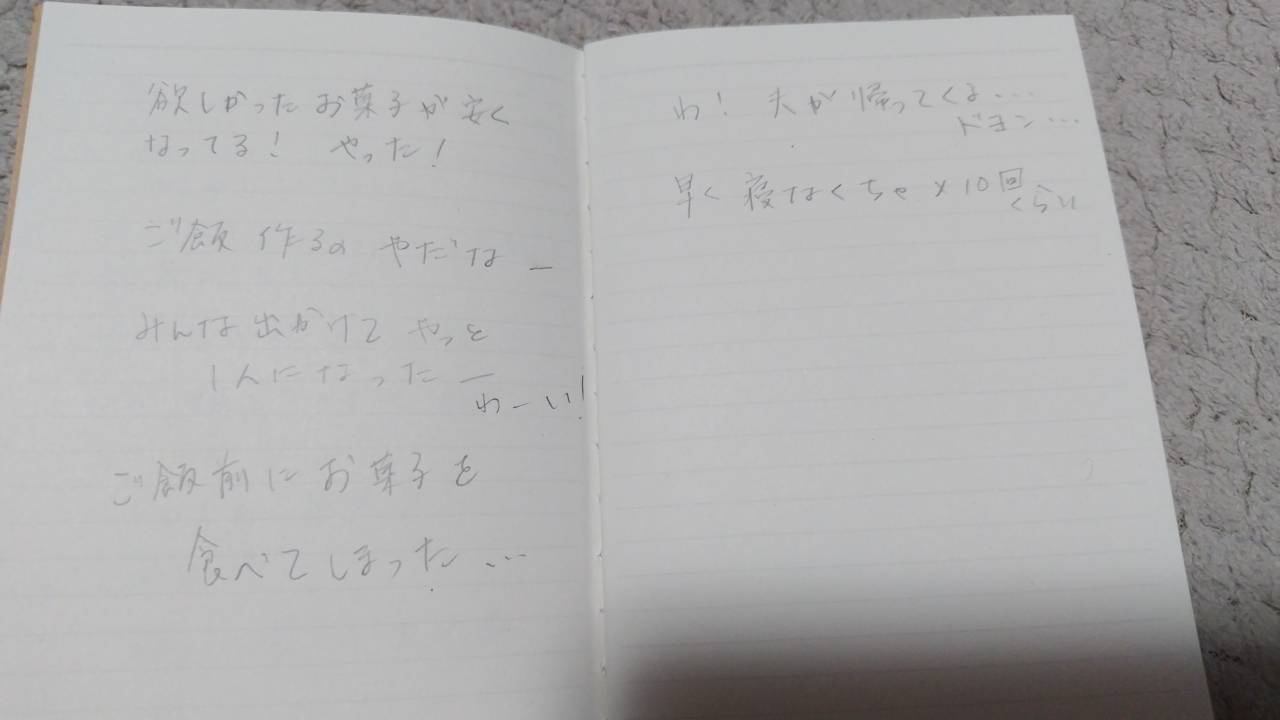 欲しかったお菓子が安く
なってる! やった!
ご飯作るの やだなー
みんな出かけて やっと
1人になったー
わーい!
ご飯前にお菓子を
食べてしまった…
わ! 夫が帰ってくる…
ドヨン…
早く寝なくちゃ×10回
くらい